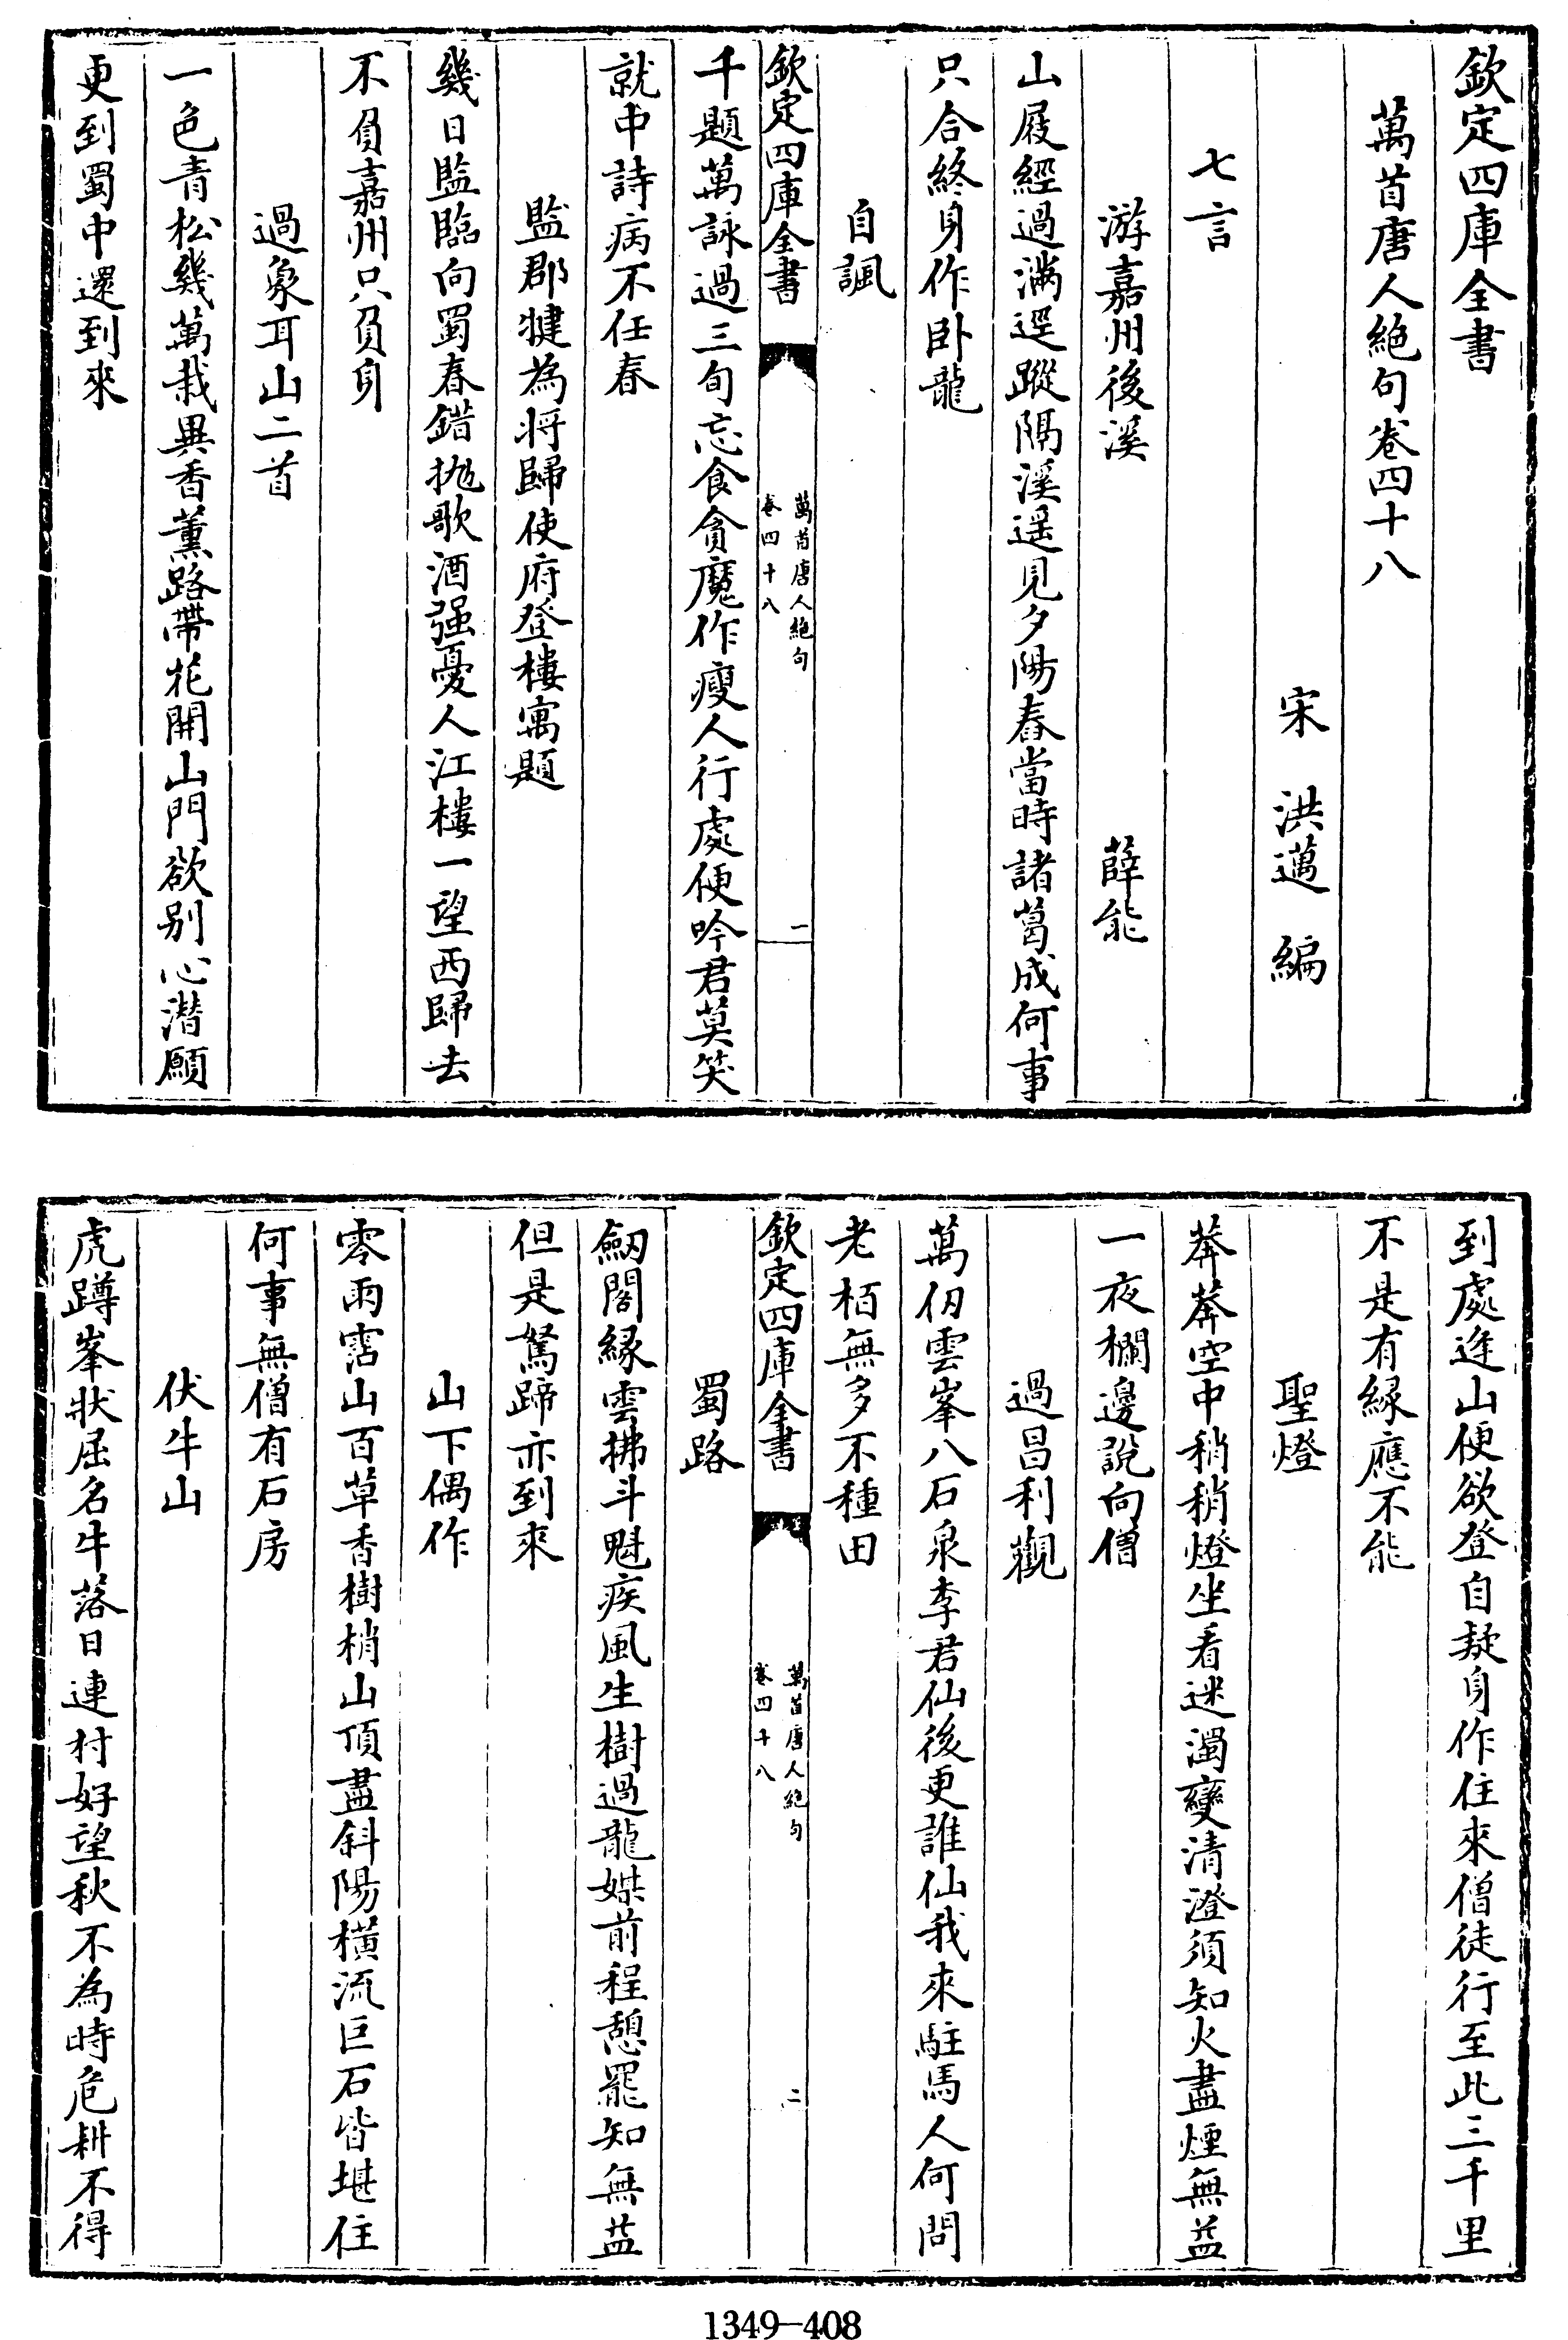 欽定四庫全書
萬首唐人絶句卷四十八
宋　洪邁　編
七言
游嘉州後溪　薛能
山屐經過滿逕蹤隔溪遥見夕陽舂當時諸葛成何事
只合終身作卧龍
自諷
欽定四庫全書
萬首唐人絶句
卷四十八
一
千題萬詠過三旬忘食貪魔作瘦人行處便吟君莫笑
就中詩病不任春
監郡犍為将歸使府登樓寓題
幾日監臨向蜀春錯抛歌酒强憂人江樓一望西歸去
不負嘉州只負身
過象耳山二首
一色青松幾萬栽異香薰路帶花開山門欲别心潜願
更到蜀中還到來
到處逢山便欲登自疑身作住來僧徒行至此三千里
不是有緑應不能
聖燈
莽莽空中稍稍燈坐看迷濁變清澄須知火盡煙無益
一夜欄邊説向僧
過昌利觀
萬仞雲峯八石泉李君仙後更誰仙我來駐馬人何問
老栢無多不種田
欽定四庫全書
萬首唐人絶句
卷四十八
二
蜀路
劒閣緣雲拂斗魁疾風生樹過龍媒前程憩罷知無益
但是駑蹄亦到來
山下偶作
零雨霑山百草香樹梢山頂盡斜陽横流巨石皆堪住
何事無僧有石房
伏牛山
虎蹲峯狀屈名牛落日連村好望秋不為時危耕不得
1349-408